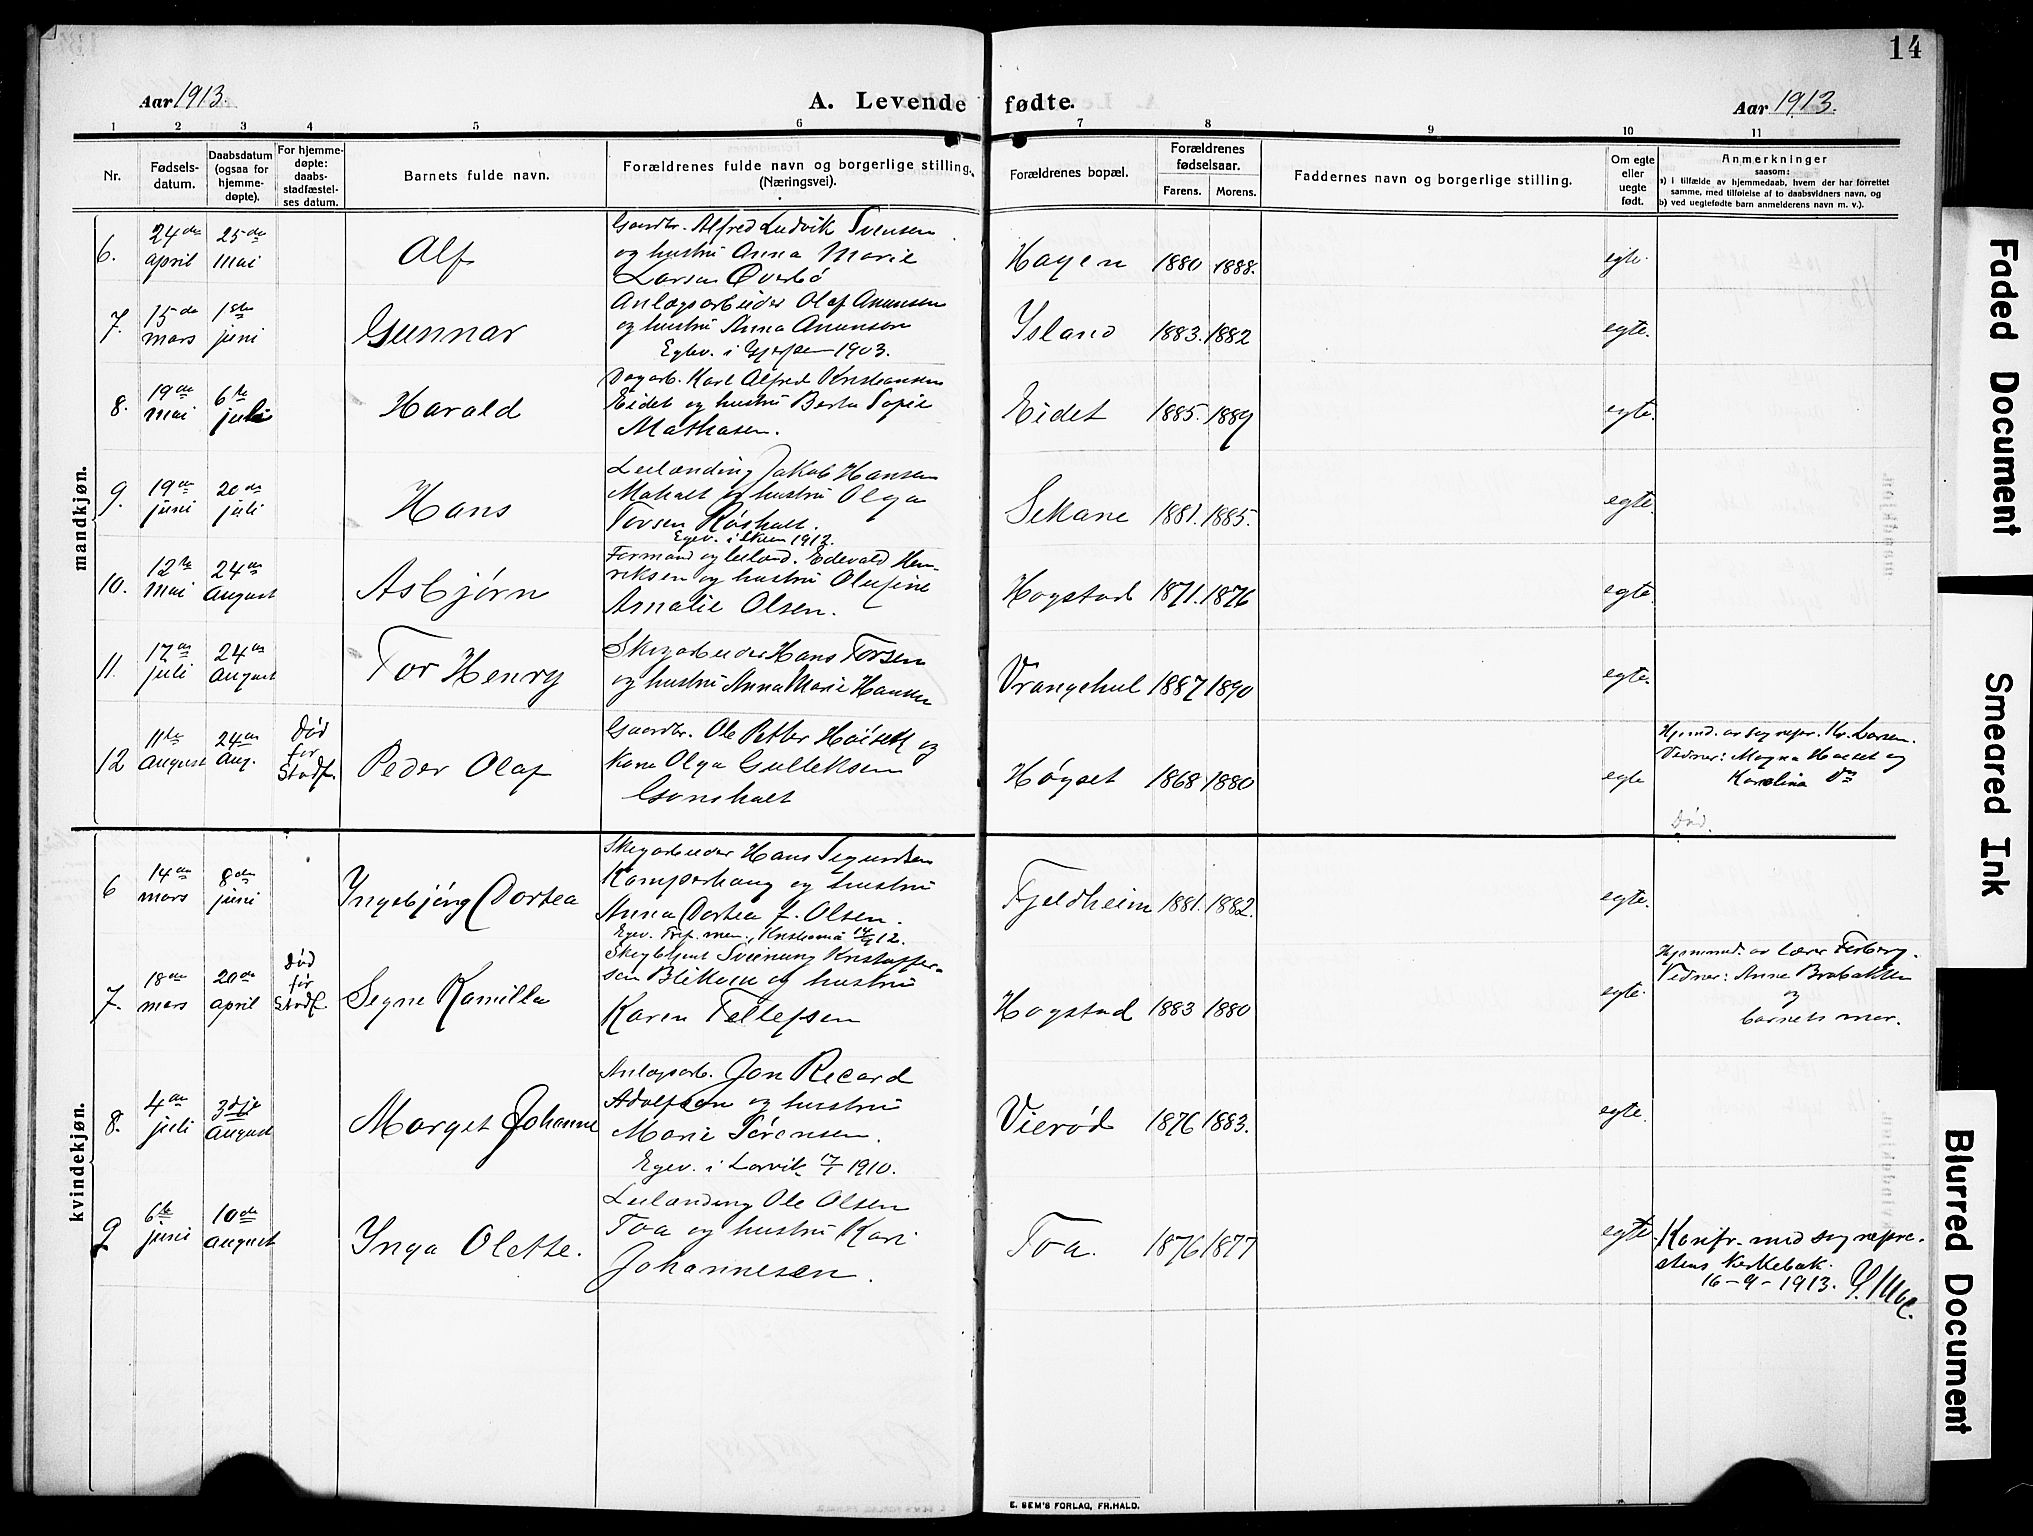 14
Aar 1913.
A. Levende fødte.
Aar 1913.
1 2 3 4 5 6 7 8 9 10 11
Nr.
Fødsels-
datum.
Daabsdatum
(ogsaa for
hjemme-
døpte).
For hjemme-
døpte:
daabs-
stadfæstel-
ses datum.
Barnets fulde navn.
Forældrenes fulde navn og borgerlige stilling.
(Næringsvei).
Forældrenes bopæl.
Forældrenes
fødselsaar.
Farens. Morens.
Faddernes navn og borgerlige stilling.
Om egte
eller
uegte
født.
Anmerkninger
saasom:
a) i tilfælde av hjemmedaab, hvem der har forrettet
samme, med tilføielse af to daabsvidners navn, og
b) ved uegtefødte barn anmelderens navn m. v.).
mandkjøn.
6.
24de
april
25de
mai
Alf
Gaardbr. Alfred Ludvik Svensen
og hustru Anna Marie
Larsen Øverbø
Hagen 1880 1888. egte.
7.
15de
mars
1ste
juni
Gunnar
Anlægsarbeider Olaf Anunsen
og hustru Anna Anunsen
Egtev. i Gjerpen 1903.
Island 1883. 1882 egte.
8.
19de
mai
6te
juli
Harald
Dagarb. Karl Alfred Kristiansen
Eidet og hustru Berta Sofie
Mathisen.
Eidet 1885. 1889 egte.
9.
19de
juni
20de
juli
Hans
Leilænding Jakob Hansen
og hustru Olga
Torsen Røsholt.
Egev. i Skien 1912.
Sekane 1881. 1885. egte.
10.
12te
mai
24de
august
Asbjørn
Formand og leilænd. Edevald Hen-
riksen og hustru Olufine
Amalie Olsen.
Hogstad 1871. 1876 egte.
11.
17de
juli
24de
august
Tor Henry
Skogarbeider Hans Torsen
og hustru Anna Marie Hansen
Vrangehul 1887 1890 egte.
12
11te
August
24de
Aug.
Død
før
Stadf.
Peder Olaf
Gaardbr. Ole Petter Høiseth og
Kone Olga Gulleksen
Gonsholt
Høgset 1868 1880 egte
Hjemd. av sognepr. Kr. Larsen.
Vidner: Magna Høeset og
Karolina Do
Død.
kvindekjøn.
6
14de
mars
8de
juni
Ingebjørg Dortea
Skogarbeider Hans Sigurdsen
Kamperhaug og hustru
Anna Dortea J. Olsen.
Egev. Tref. men., Kristiania 14/9 12.
Fjeldheim 1881. 1882. egte.
7.
18de
mars
20de
april
Død
før
Stadf.
Signe Kamilla
Skogbetjent Sveinung Kristoffer-
sen Blikom og hustru
Karen Tellefsen
Hogstad 1883 1880 egte.
Hjemmed. av lærer Feberg.
Vidner: Anne Brobakken
og
barnets mor.
8.
4de
juli
3dje
august
Marget Johanne
Anlægsarb. Jon Recard
Adolfsen og hustru
Marie Sørensen.
Egev. i Larvik 17/7 1910.
Vierød 1876 1883. egte.
9
6te
juni
10de
august
Inga Olette.
Leilænding Ole Olsen
Toa og hustru Kari
Johannesen.
Toa. 1876 1877 egte.
Konfr. med sognepre-
stens kirkebok.
16-9-1913. Moe.
E. SEM'S FORLAG, FR.HALD.
Faded Document
Smeared Ink
Blurred Document